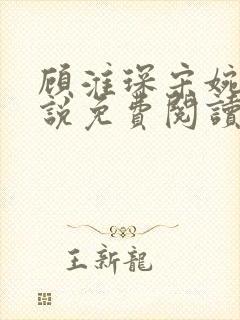 顾淮琛宋婉
說免費閱讀
王新龍